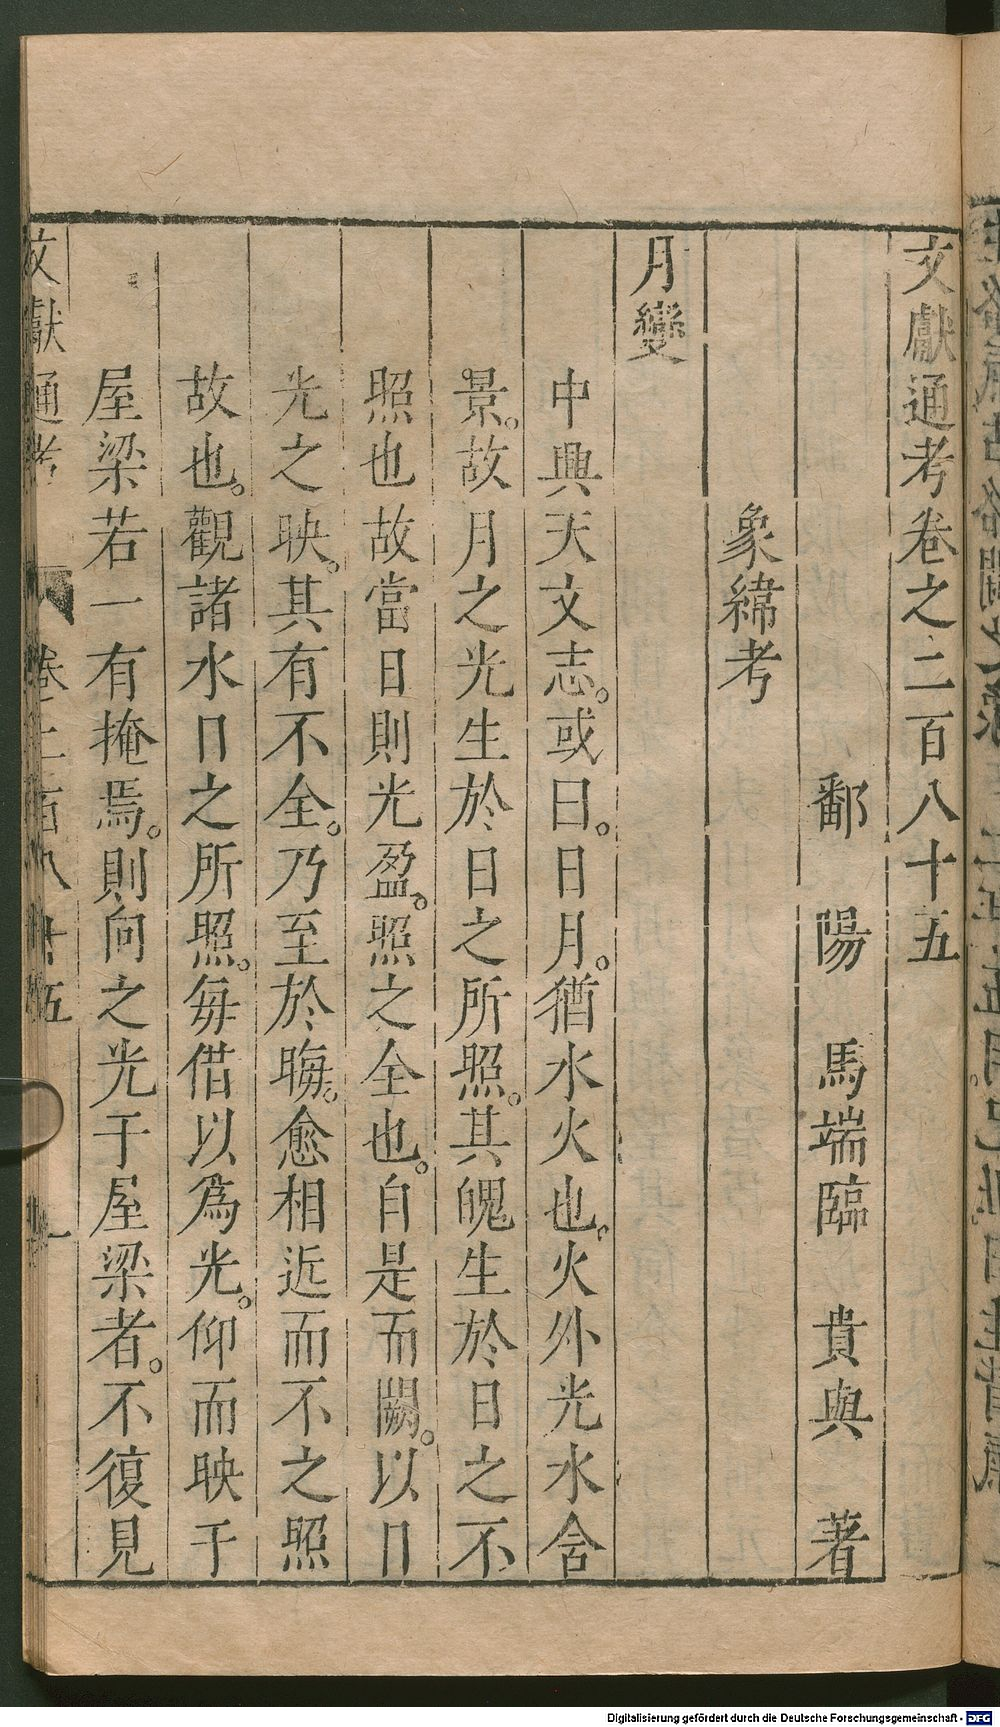 文獻通考卷之二百八十五
鄱陽馬端臨貴與著
象緯考
月變
中興天文志。或曰。日月。猶水火也。火外光水含
景。故月之光生於日之所照。其魄生於日之不
照也故當日則光盈。照之全也。自是而闕。以日
光之映。其有不全。乃至於晦。愈相近而不之照
故也。觀諸水日之所照。每借以爲光。仰而映于
屋梁若一有掩焉。則向之光于屋梁者。不復見
文獻通考 卷二百八十五 一
Digitalisierung gefördert durch die Deutsche Forschungsgemeinschaft - DFG